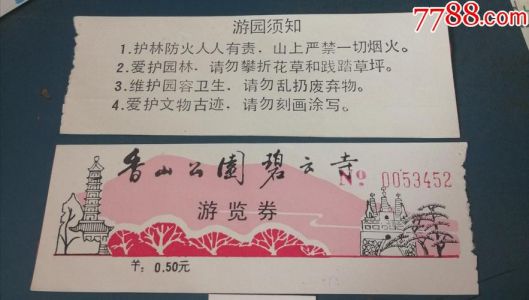 7788.com
游园须知
1.护林防火人人有责．山上严禁一切烟火。
2.爱护园林．请勿攀折花草和践踏草坪。
3.维护园容卫生．请勿乱扔废弃物。
4.爱护文物古迹．请勿刻画涂写。
香山公園碧云寺
№ 0053452
游览券
羊: 0.50元
7788.com